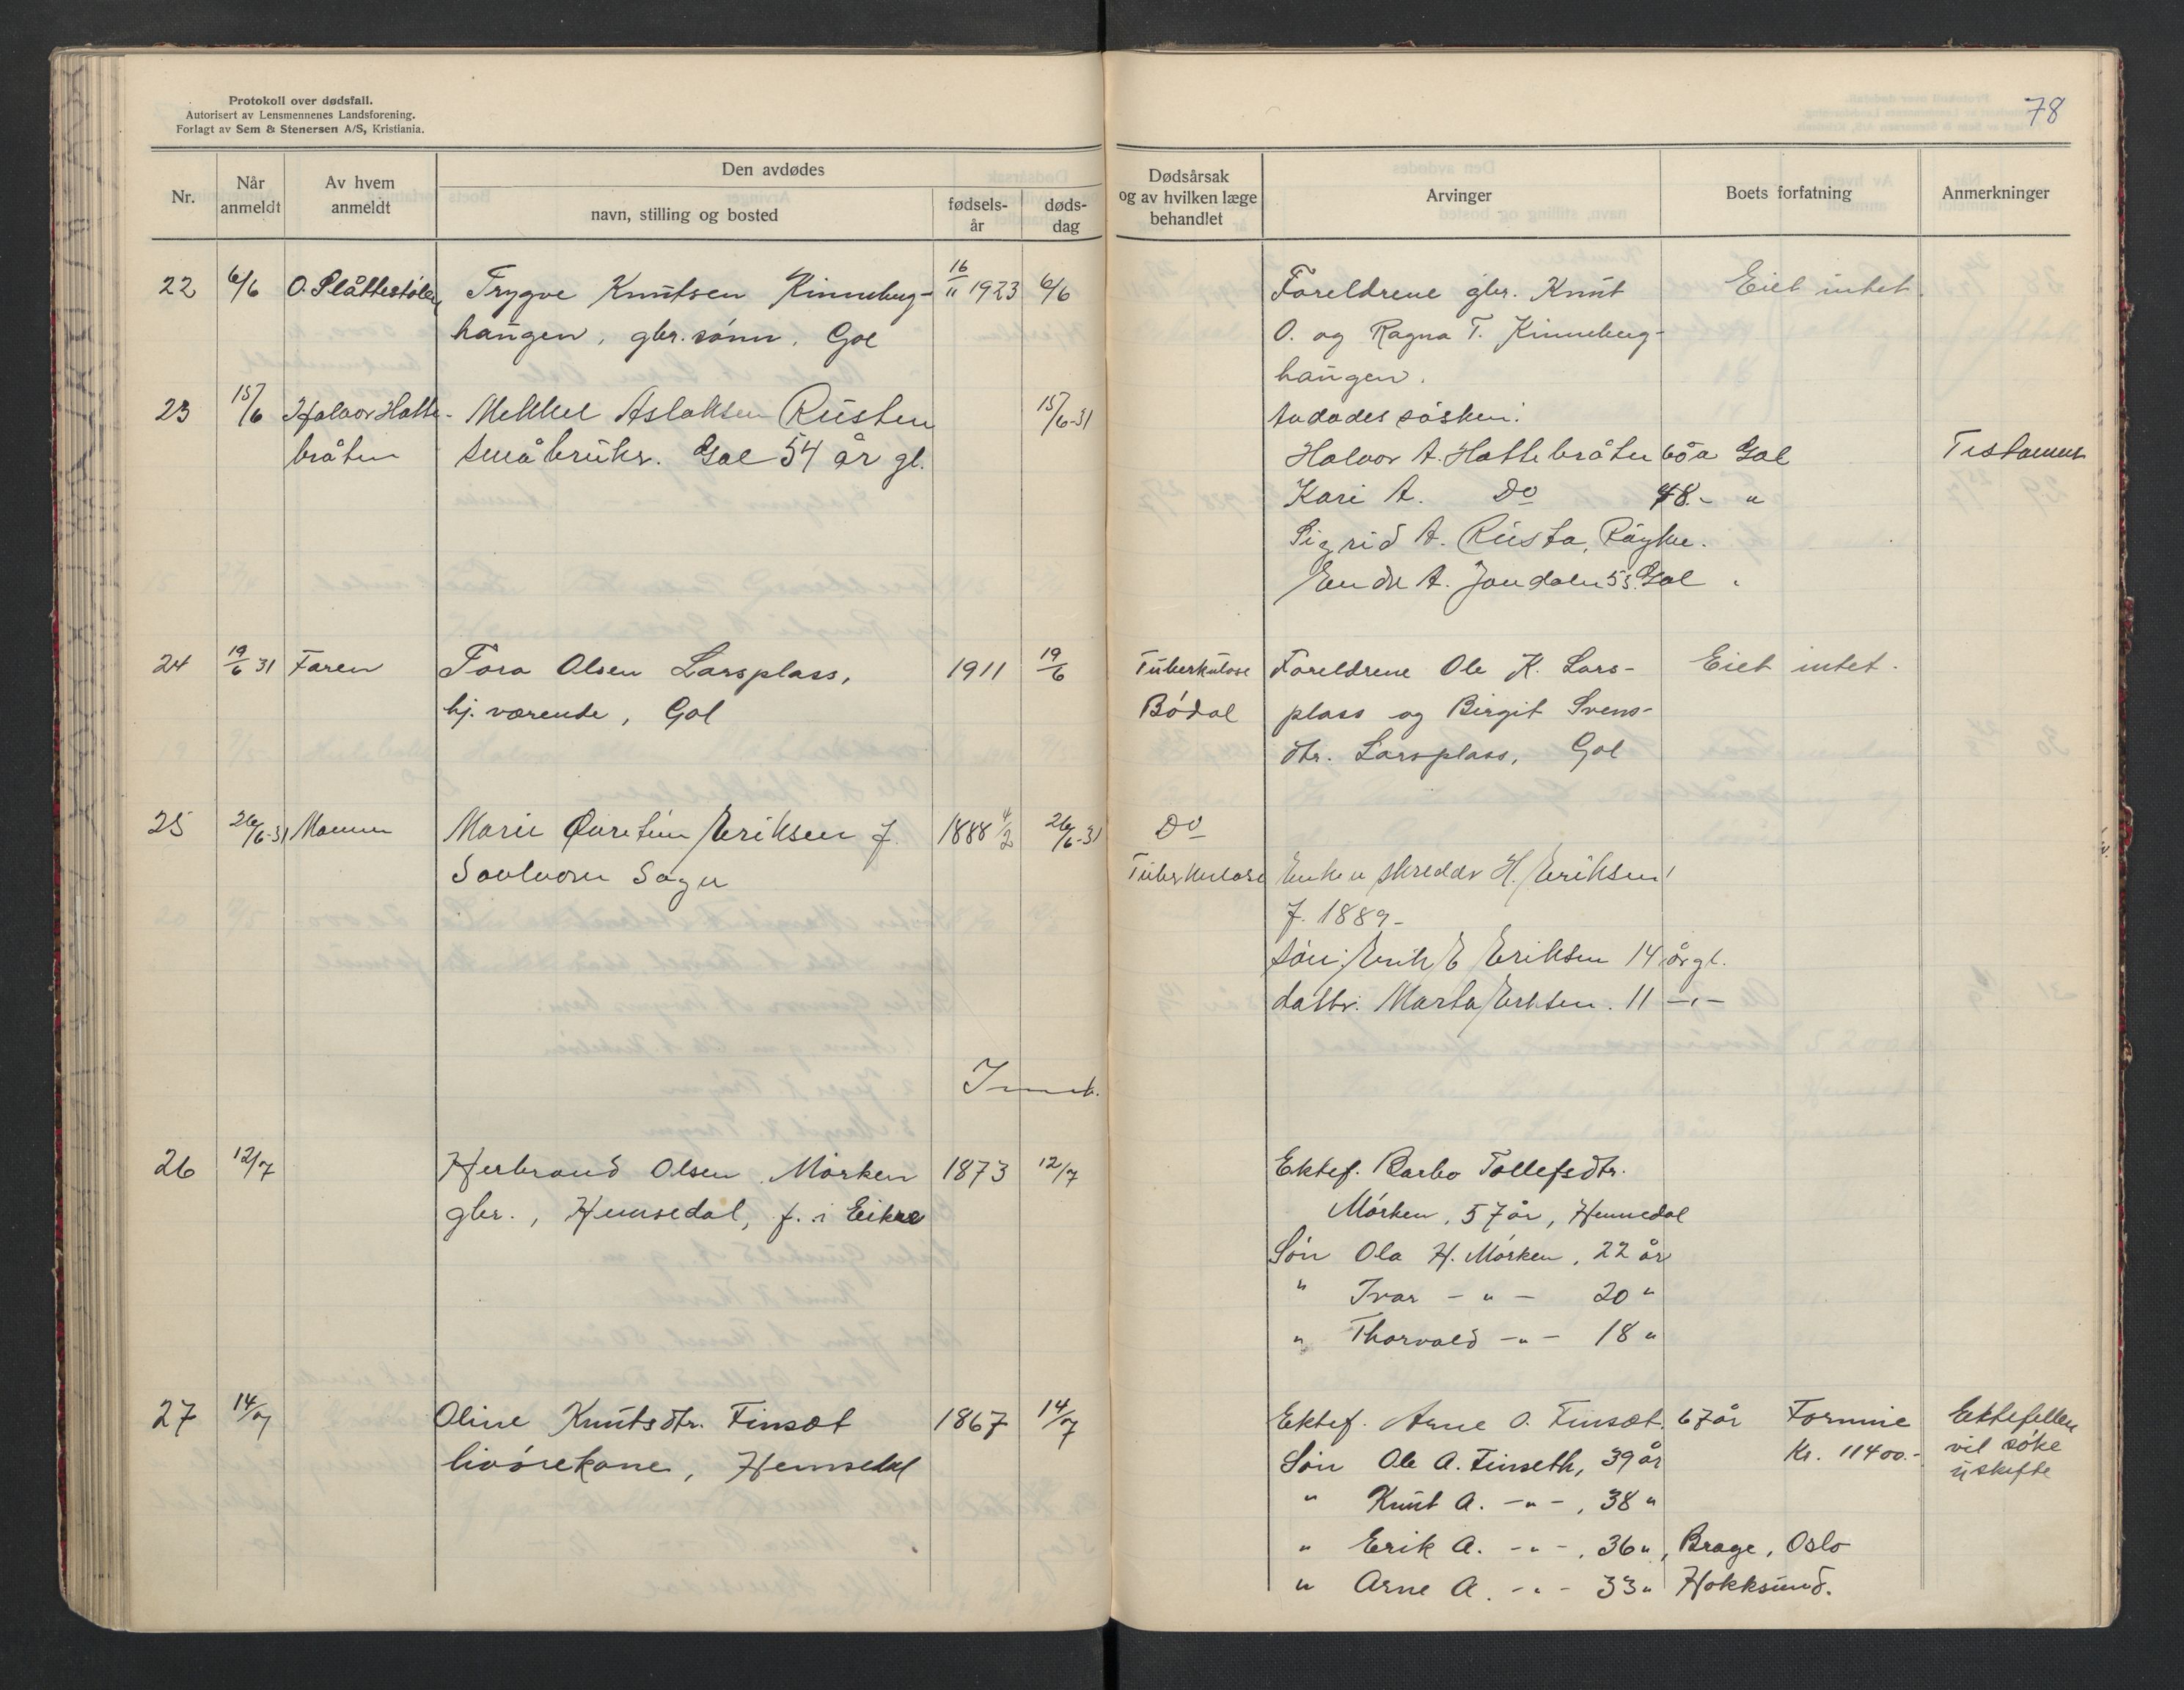 Protokoll over dødsfall.
Autorisert av Lensmennenes Landsforening.
Forlagt av Sem & Stenersen A/S, Kristiania.
78
Nr.
Når anmeldt
Av hvem anmeldt
Den avdødes
navn, stilling og bosted
fødselsår
dødsdag
Dødsårsak og av hvilken læge behandlet
Arvinger
Boets forfatning
Anmerkninger
22 6/6 O. Slåttestølen Trygve Knutsen Kinneberg- 16/11 1923 6/6 Foreldrene gbr. Knut Eiet intet.
haugen, gbr. sønn, Gol O. og Ragna T. Kinneberg-
haugen.
23 15/6 Halvor Hatte- Mekkel Aslaksen Rusten 15/6-31 Avdødes søsken:
bråten småbrukr. Gol 54 år gl. Halvor A. Hattebråten 60 a Gol Testament
Kari A. Do 48.- "
Sigrid A. Rusta, Røyke.
Endre A. Jondalen 53. Gol
24 19/6 31 Faren Tora Olsen Larsplass, 1911 19/6 Tuberkulose Foreldrene Ole K. Lars- Eiet intet.
hj. værende, Gol Bødal plass og Birgit Svens-
dtr. Larsplass, Gol
25 26/6-31 Mannen Marie Eriksen f. 1888 4/2 26/6-31 Do
Tuberkulose Enken skredder H. Eriksen
f. 1889-
søn: Erik E Eriksen 14 år gl.
dattr. Marta Eriksen. 11 -"-
26 12/7 Herbrand Olsen Mørken 1873 12/7 Ektef. Barbo Tollefsdtr.
gbr., Hemsedal, f. i Eikre Mørken, 57 år, Hemsedal
Søn Ola H. Mørken, 22 år
" Ivar - " - 20 "
" Thorvald - " - 18 "
27 14/7 Oline Knutsdtr. Finset 1867 14/7 Ektef. Arne O. Finset. 67 år Formue Ektefellen
livørekone, Hemsedal Søn Ole A. Finseth, 39 år Kr. 11400.- vil søke
uskifte
" Knut A. - " -, 38 "
" Erik A. - " -, 36 ", Brage, Oslo
" Arne A. - " - 33 " Hokksund.